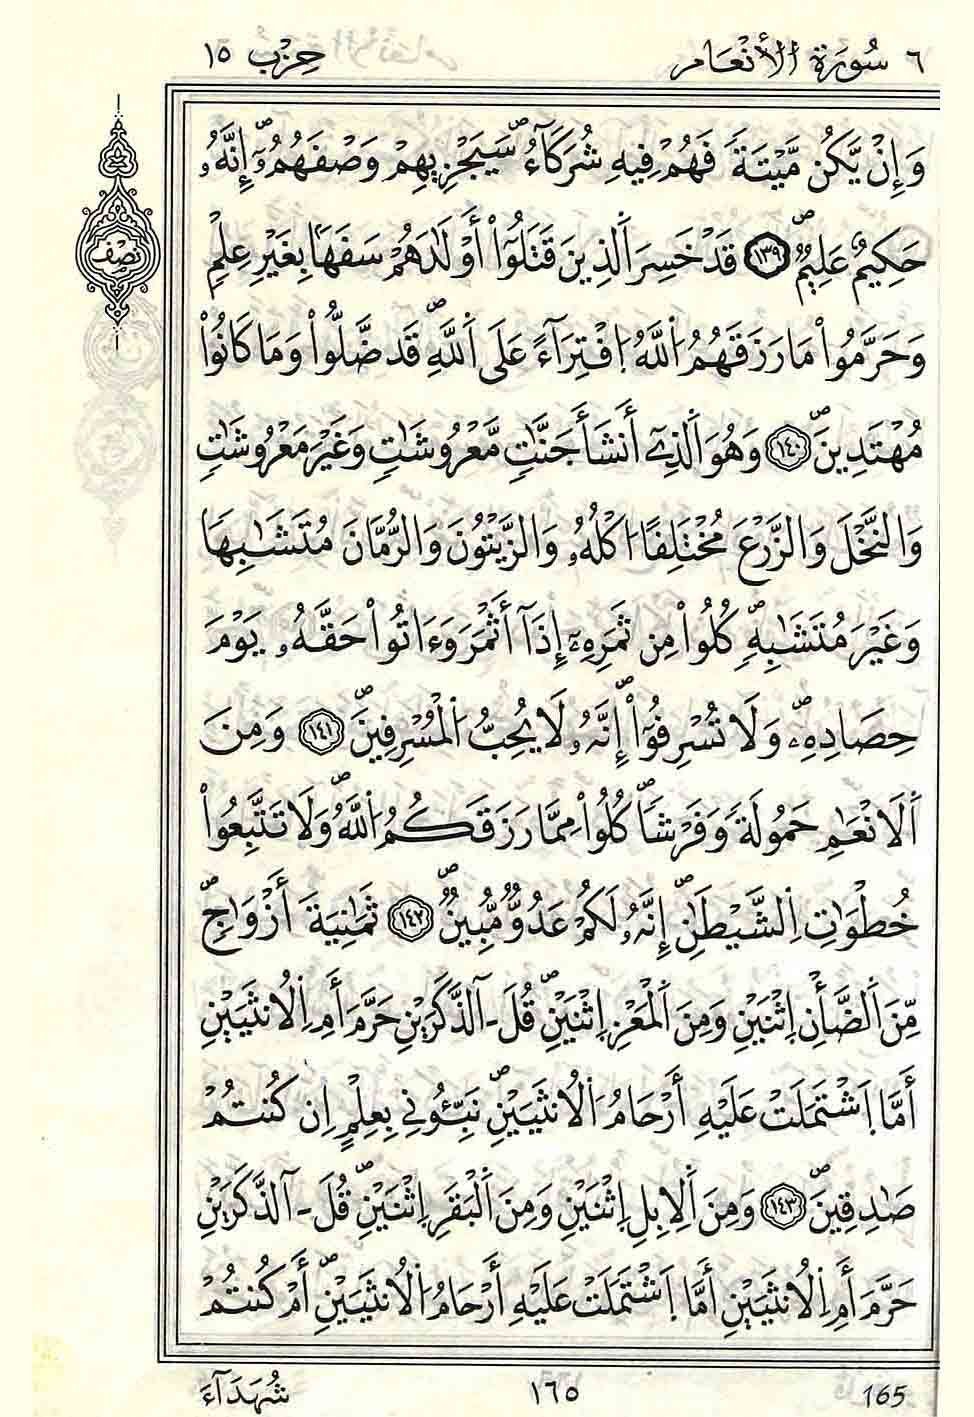 ٦ سُورَةُ الْأَنْعَام
حِزْب ١٥
وَإِنْ يَّكُن مَّيْتَةً فَهُمْ فِيهِ شُرَكَآءُ سَيَجْزِيهِمْ وَصْفَهُمُۥٓ إِنَّهُۥ
نصف
حَكِيمٌ عَلِيمٌ ١٣٩ قَدْ خَسِرَ اَ۬لذِينَ قَتَلُوٓاْ أَوْلَٰدَهُمْ سَفَهاَۢ بِغَيْرِ عِلْمٍ
وَحَرَّمُواْ مَا رَزَقَهُمُ اُ۬للَّهُ اُ۪فْتِرَآءً عَلَى اَ۬للَّهِ قَد ضَّلُّواْ وَمَا كَانُواْ
مُهْتَدِينَ ١٤٠ وَهُوَ اَ۬لذِےٓ أَنشَأَ جَنَّٰتٖ مَّعْرُوشَٰتٖ وَغَيْرَ مَعْرُوشَٰتٖ
وَالنَّخْلَ وَالزَّرْعَ مُخْتَلِفاً اُكْلُهُۥ وَالزَّيْتُونَ وَالرُّمَّانَ مُتَشَٰبِهاً
وَغَيْرَ مُتَشَٰبِهٖ كُلُواْ مِن ثَمَرِهِۦٓ إِذَآ أَثْمَرَ وَءَاتُواْ حَقَّهُۥ يَوْمَ
حِصَادِهِۦ وَلَا تُسْرِفُوٓاْ إِنَّهُۥ لَا يُحِبُّ اُ۬لْمُسْرِفِينَ ١٤١ وَمِنَ
اَ۬لَانْعَٰمِ حَمُولَةً وَفَرْشاً كُلُواْ مِمَّا رَزَقَكُمُ اُ۬للَّهُ وَلَا تَتَّبِعُواْ
خُطْوَٰتِ اِ۬لشَّيْطَٰنِ إِنَّهُۥ لَكُمْ عَدُوٌّ مُّبِينٌ ١٤٢ ثَمَٰنِيَةَ أَزْوَٰجٖ
مِّنَ اَ۬لضَّأْنِ اِ۪ثْنَيْنِ وَمِنَ اَ۬لْمَعْزِ اِ۪ثْنَيْنِ قُلَ ـ آلذَّكَرَيْنِ حَرَّمَ أَمِ اِ۬لُانثَيَيْنِ
أَمَّا اَ۪شْتَمَلَتْ عَلَيْهِ أَرْحَامُ اُ۬لُانثَيَيْنِ نَبِّـُٔونِي بِعِلْمٍ اِن كُنتُمْ
صَٰدِقِينَ ١٤٣ وَمِنَ اَ۬لِابِلِ اِ۪ثْنَيْنِ وَمِنَ اَ۬لْبَقَرِ اِ۪ثْنَيْنِ قُلَ ـ آلذَّكَرَيْنِ
حَرَّمَ أَمِ اِ۬لُانثَيَيْنِ أَمَّا اَ۪شْتَمَلَتْ عَلَيْهِ أَرْحَامُ اُ۬لُانثَيَيْنِ أَمْ كُنتُمْ
شُهَدَآءَ
١٦٥
165